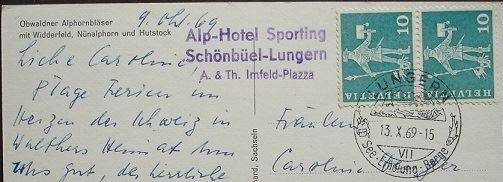 Obwaldner Alphornbläser
mit Widderfeld, Nünalphorn und Hutstock
9. Okt. 69
Alp-Hotel Sporting
Schönbüel-Lungern
A. & Th. Imfeld-Piazza
10 10
HELVETIA HELVETIA
LUNGERN
13.X.69-15
VII
See-Erholung-Berge
Liebe Caroline
Tage Ferien im
Herzen der Schweiz in
Walthers Heimat tun
uns gut, der herrliche
Sachseln
Fräulein
Caroline